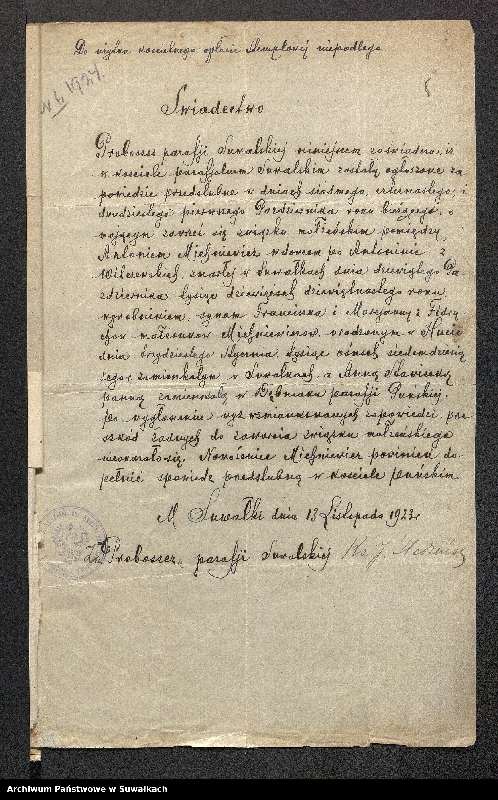 Do użytku kościelnego opłacie stemplowej niepodlega
N 6 1924.
Świadectwo
Proboszcz parafji Suwalskiej niniejszem zaświadcza, iż
w kościele parafjalnym Suwalskim zostały ogłoszone za
powiedzie przedślubne w dniach siódmego, czternastego i
dwudziestego pierwszego Października roku bieżącego, o
mającym zawrzeć się związku małżeńskim pomiędzy
Antonim Michniewicz wdowcem po Antoninie z
zmarłej w Suwałkach dnia dziewiątego Pa
ździernika tysiąc dziewięćset dziewiętnastego roku
synem Franciszka i Marcjanny z Fidry
chów małżonków Michniewiczów, urodzonym w
dnia trzydziestego Stycznia tysiąc ośmset siedemdziesią
tego zamieszkałym w Suwałkach, a Anną
panną zamieszkałą w parafji Puńskiej.
Po wygłoszeniu wyż wzmiankowanych zapowiedzi prze
szkód żadnych do zawarcia związku małżeńskiego
nieokazało się. Narzeczeni Michniewicz powinien do
pełnić spowiedź przedślubną w kościele puńskim
M. Suwałki dnia 13 Listopada 1923 r
Za Proboszcza parafji Suwalskiej Ks J.
Archiwum Państwowe w Suwałkach